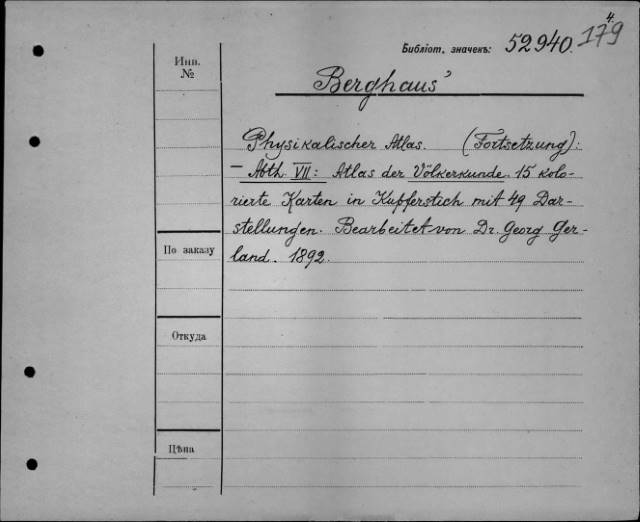 4.
Библіот. значекъ: 52940. 179
Инв.
№
Berghaus'
Physikalischer Atlas. (Fortsetzung):
— Abth. VII: Atlas der Völkerkunde. 15 kolo-
rierte Karten in Kupferstich mit 49 Dar-
stellungen. Bearbeitet von Dr. Georg Ger-
land. 1892.
По заказу
Откуда
Цѣна